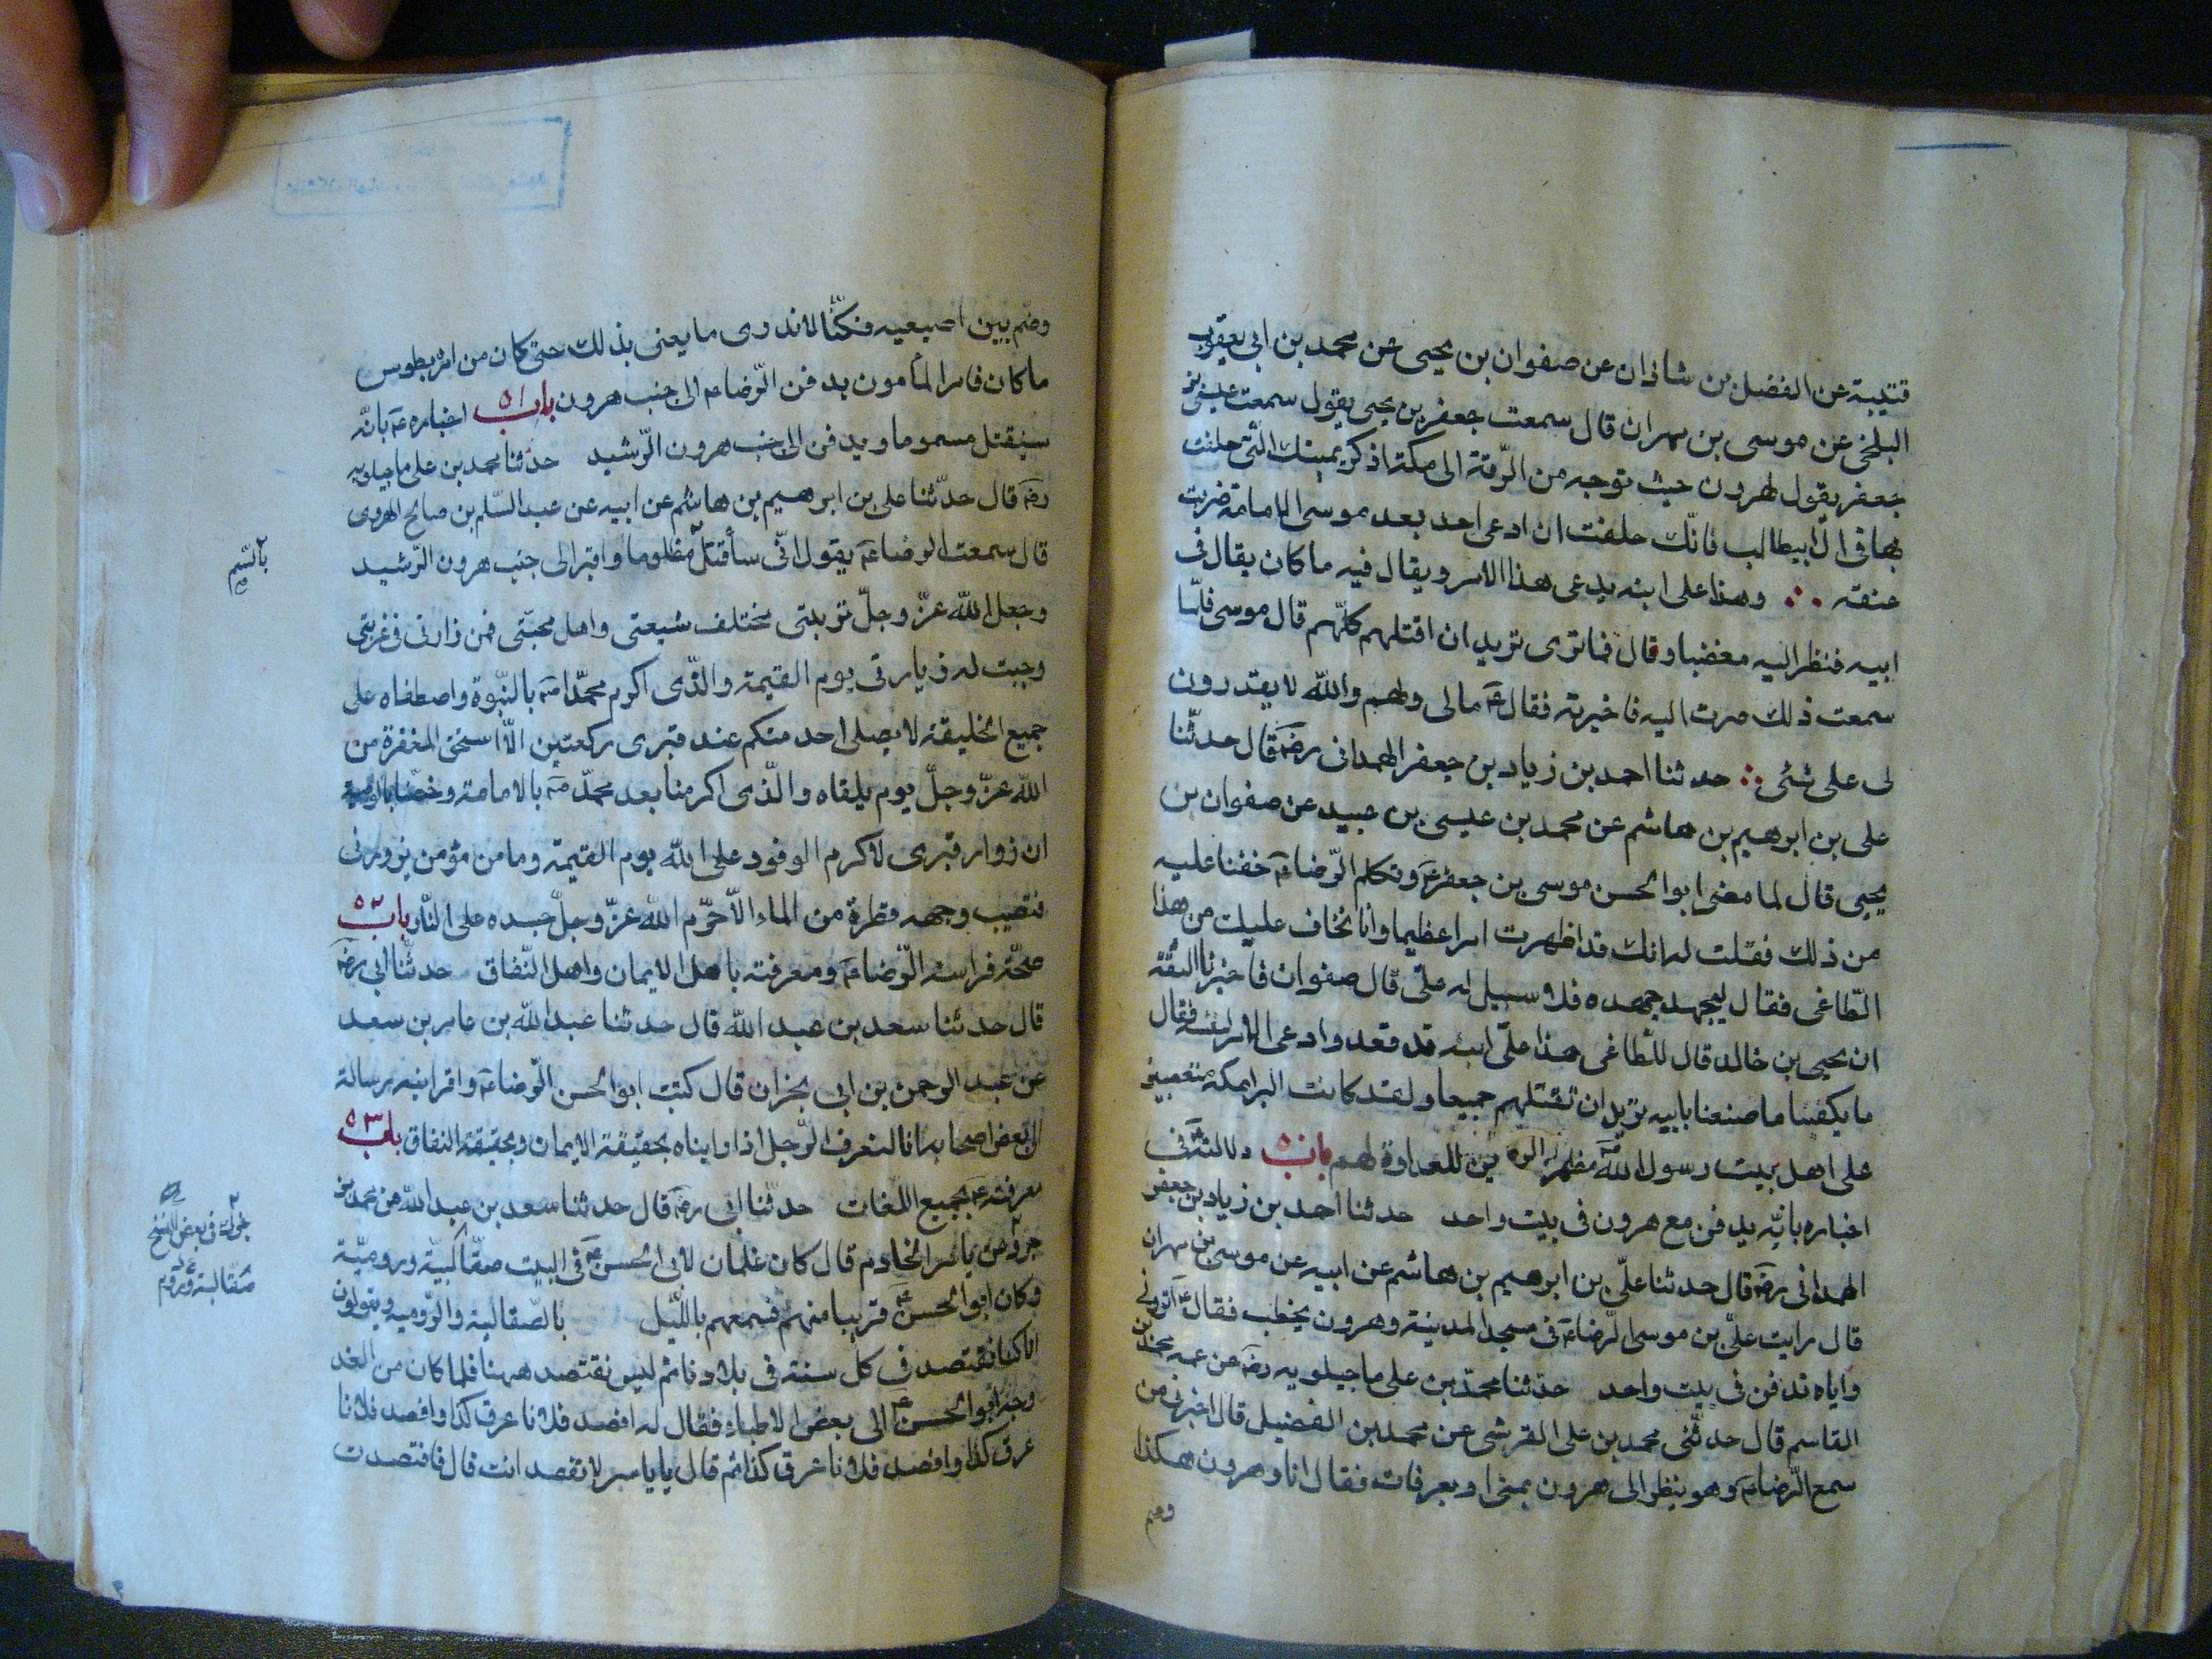 قتيبة عن الفضل بن شاذان عن صفوان بن يحيى عن محمد بن ابى يعقوب
البلخى عن موسى بن مهران قال سمعت جعفر بن يحيى يقول سمعت عيسى بن
جعفر يقول لهرون حيث توجه من الرّقة الى مكة اذكر يمينك الّتى حلفت
بها فى ال ابيطالب فانّك حلفت ان ادعى احد بعد موسى الامامة ضربت
عنقه وهذا على ابنه يدعى هذا الامر ويقال فيه ما كان يقال فى
ابيه فنظر اليه مغضبا وقال فما ترى تريد ان اقتلهم كلّهم قال موسى فلمّا
سمعت ذلك صرت اليه فاخبرته فقال ع مالى ولهم والله لا يقدرون
لى على شئ حدثنا احمد بن زياد بن جعفر الهمدانى رضه قال حدثنا
على بن ابرهيم بن هاشم عن محمد بن عيسى بن عبيد عن صفوان بن
يحيى قال لما مضى ابو الحسن موسى بن جعفر ع وتكلم الرّضا ع خفنا عليه
من ذلك فقلت له انك قد اظهرت امرا عظيما وانا نخاف عليك من هذا
الطّاغى فقال ليجهد جهده فلا سبيل له علىّ قال صفوان فاخبرنا الثقة
ان يحيى بن خالد قال للطّاغى هذا علىّ ابنه قد قعد وادعى الامر لنفسه فقال
ما يكفينا ما صنعنا بابيه تريد ان تقتلهم جميعا ولقد كانت البرامكة متغضبين
على اهل بيت رسول الله مظهرين للعداوة لهم باب ٥٠ دلالته ع فى
اخباره بانّه يدفن مع هرون فى بيت واحد حدثنا احمد بن زياد بن جعفر
الهمدانى رضه قال حدثنا علىّ بن ابرهيم بن هاشم عن ابيه عن موسى بن مهران
قال رايت علىّ بن موسى الرّضا ع فى مسجد المدينة وهرون يخطب فقال ع اترونى
واياه ندفن فى بيت واحد حدثنا محمّد بن على ماجيلويه رضه عن عمه محمد بن
القاسم قال حدثنى محمد بن على القرشى عن محمد بن الفضيل قال اخبرنى من
سمع الرّضا ع وهو ينظر الى هرون بمنى او بعرفات فقال انا وهرون هكذا
وضم
وضم بين اصبعيه فكنّا لا ندرى ما يعنى بذلك حتى كان من امره بطوس
ما كان فامر المأمون بدفن الرّضا ع الى جنب هرون باب ٥١ اخباره ع بانّه
سيقتل مسموما ويدفن الى جنب هرون الرّشيد حدثنا محمد بن على ماجيلويه
رضه قال حدّثنا على بن ابرهيم بن هاشم عن ابيه عن عبد السّلم بن صالح الهروى
قال سمعت الرضا ع يقول انّى سأقتل مظلوما واقبر الى جنب هرون الرّشيد
بالسّم
وجعل الله عزّ وجلّ تربتى مختلف شيعتى واهل محبّتى فمن زارنى فى غربتى
وجبت له زيارتى يوم القيمة والّذى اكرم محمّدا ص بالنّبوة واصطفاه على
جميع الخليقة لا يصلى احد منكم عند قبرى ركعتين الّا استحق المغفرة من
الله عزّ وجلّ يوم يلقاه والّذى اكرمنا بعد محمّد ص بالامامة وخصّنا بالوصية
ان زوار قبرى لاكرم الوفود على الله يوم القيمة وما من مؤمن يزورنى
فتصيب وجهه قطرة من الماء الّا حرّم الله عزّ وجلّ جسده على النّار باب ٥٢
صحّة فراسة الرّضا ع ومعرفته باهل الايمان واهل النّفاق حدثنا ابى رضه
قال حدثنا سعد بن عبد الله قال حدثنا عبد الله بن عامر بن سعد
عن عبد الرحمن بن ابى نجران قال كتب ابو الحسن الرّضا ع واقرانيه رسالة
الى بعض اصحابه انا لنعرف الرّجل اذا رايناه بحقيقة الايمان وبحقيقة النفاق باب ٥٣
معرفته ع بجميع اللّغات حدثنا ابى رضه قال حدثنا سعد بن عبد الله عن محمد بن
جزك عن ياسر الخادم قال كان غلمان لابى الحسن ع فى البيت صقالبيّة وروميّة
فى بعض النسخ
صقالبة وروم
وكان ابو الحسن ع قريبا منهم فسمعهم باللّيل بالصّقالبية والرّوميه ويقولون
انا كنا نفتصد فى كل سنة فى بلادنا ثم ليس نفتصد ههنا فلما كان من الغد
وجه ابو الحسن ع الى بعض الاطباء فقال له افصد فلانا عرق كذا وافصد فلانا
عرق كذا وافصد فلانا عرق كذا ثم قال يا ياسر لا تفصد انت قال فافتصدت